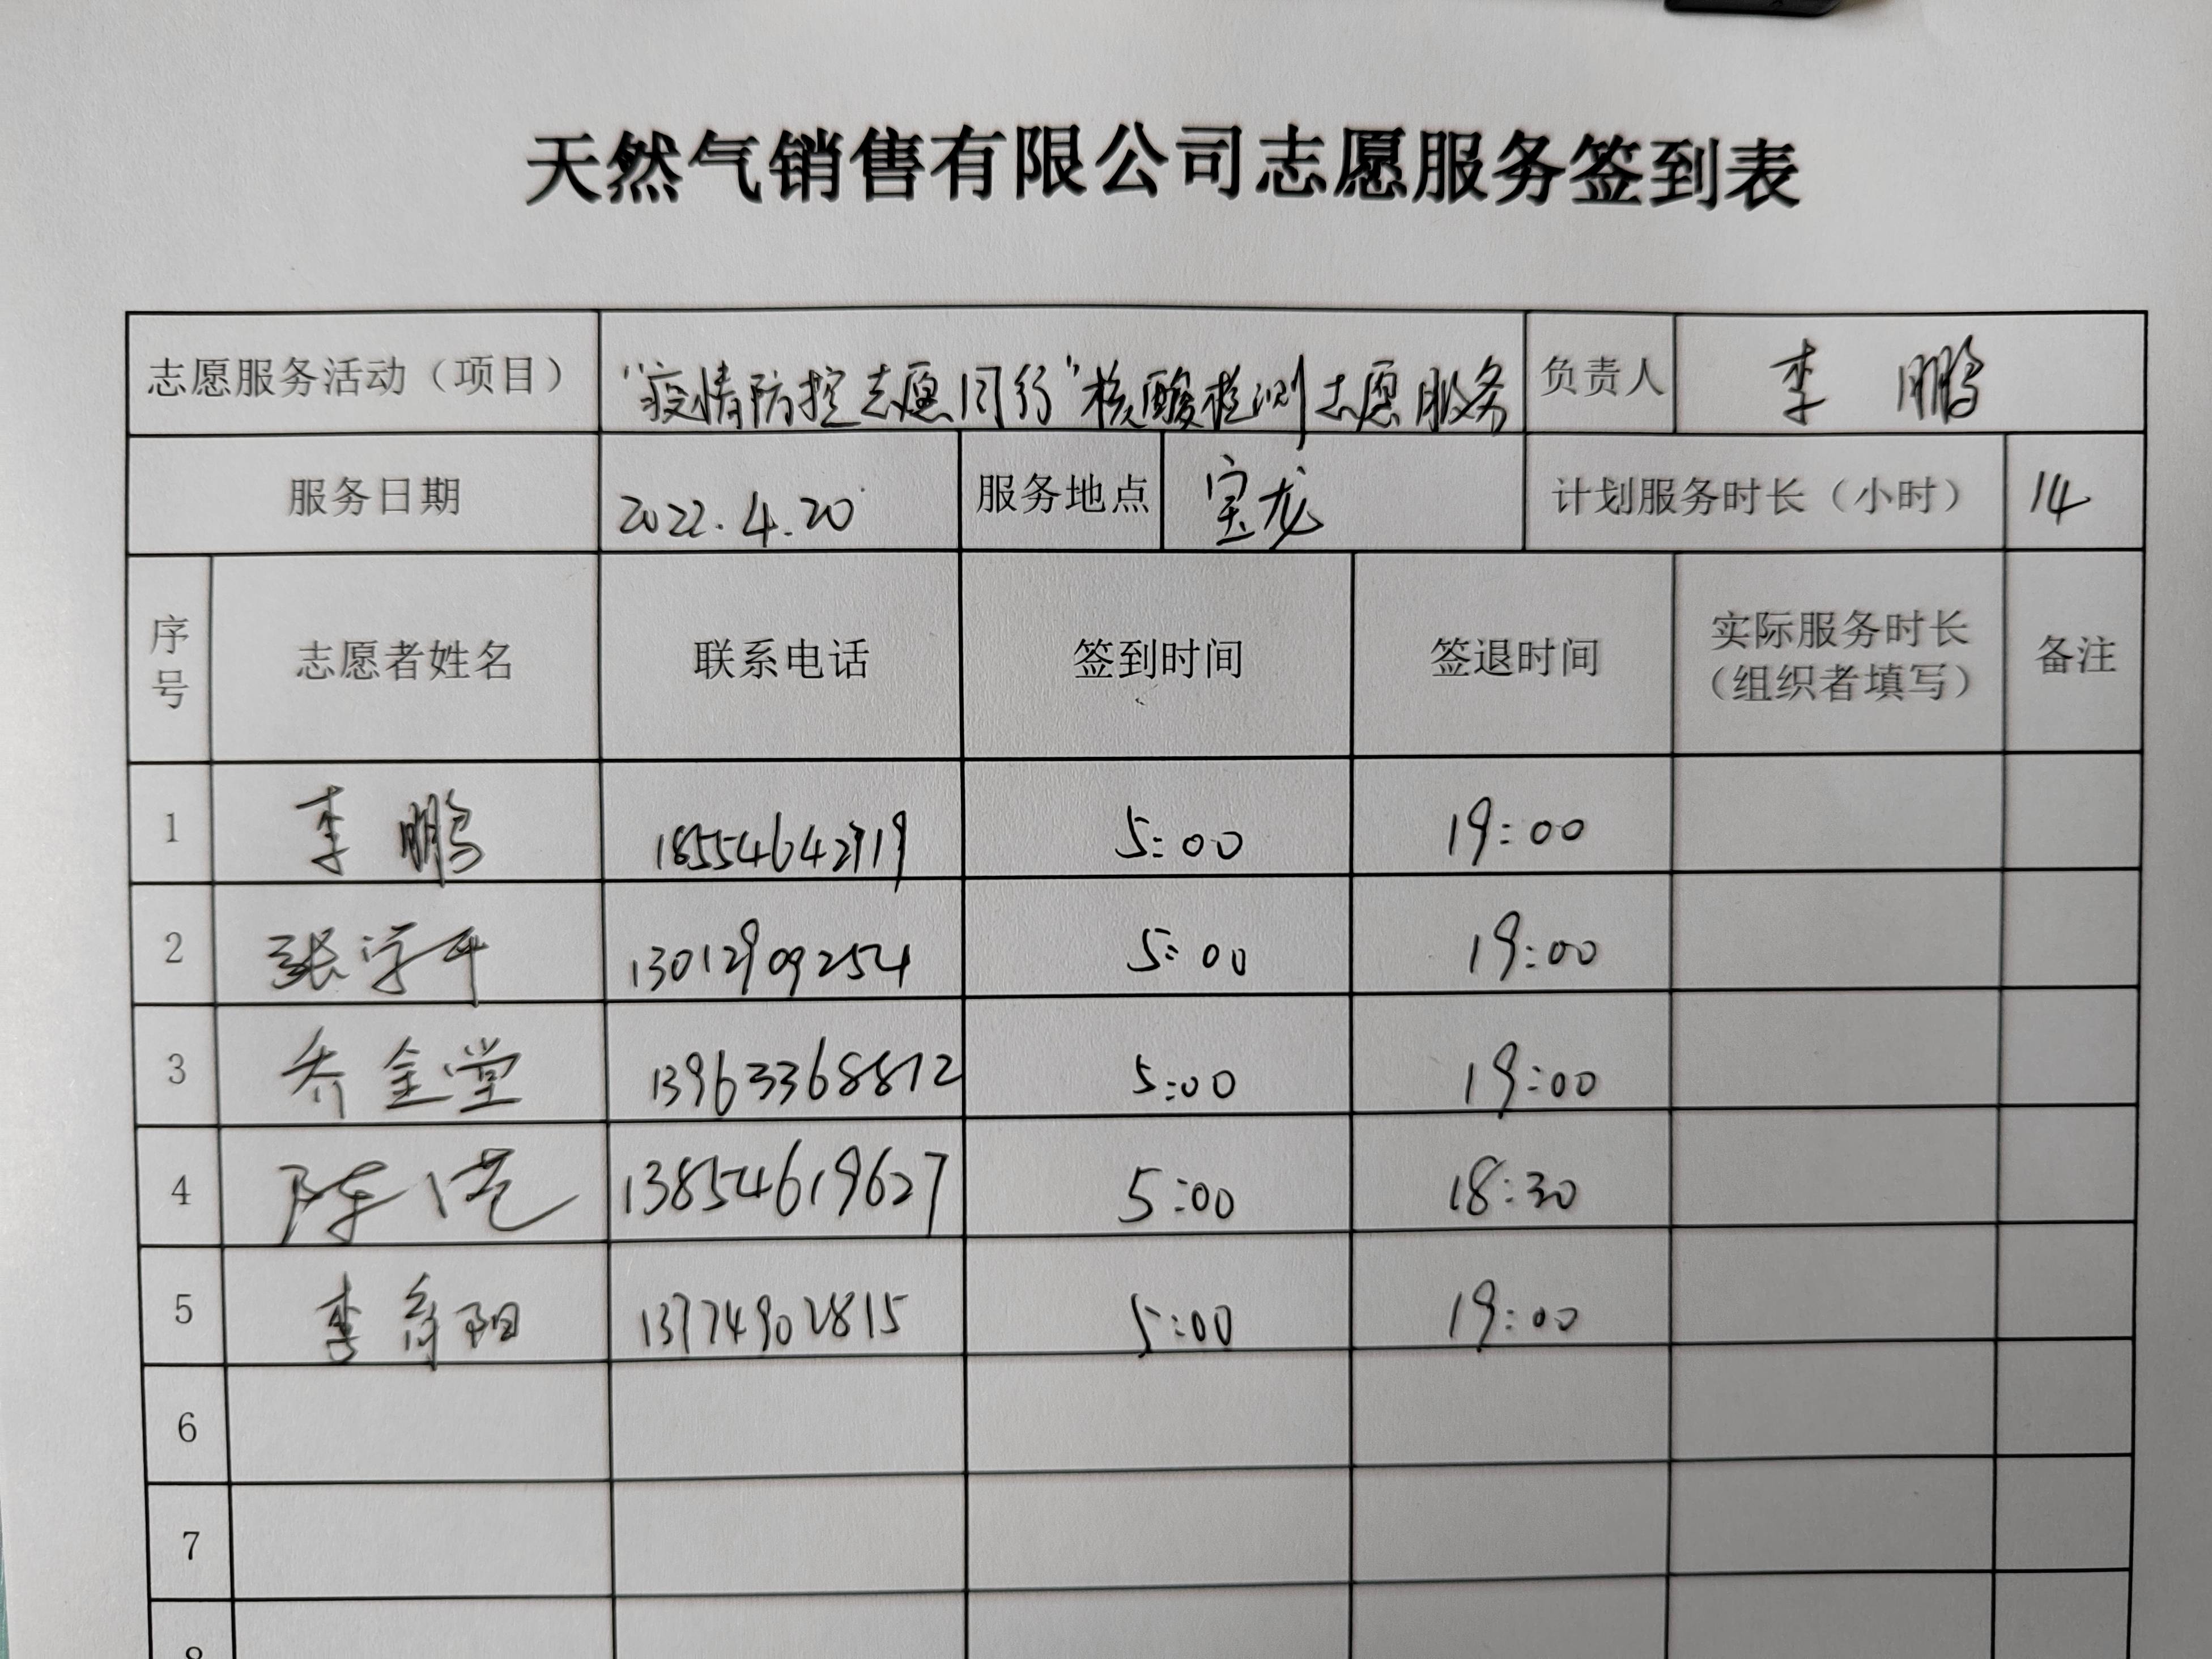 天然气销售有限公司志愿服务签到表
志愿服务活动（项目） “疫情防控志愿同行”核酸检测志愿服务 负责人 李鹏
服务日期 2022.4.20 服务地点 宝龙 计划服务时长（小时） 14
序号 志愿者姓名 联系电话 签到时间 签退时间 实际服务时长（组织者填写） 备注
1 李鹏 5:00 19:00
2 13012909254 5:00 19:00
3 乔金堂 13963368812 5:00 19:00
4 13854619627 5:00 18:30
5 5:00 19:00
6
7
8